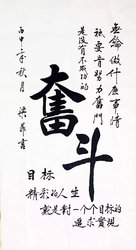 無論做什麼事情
祇要肯努力奮鬥
是沒有不成功的
奮斗
目标
精彩的人生
就是對一个个目标的
追求實現
丙申年秋月